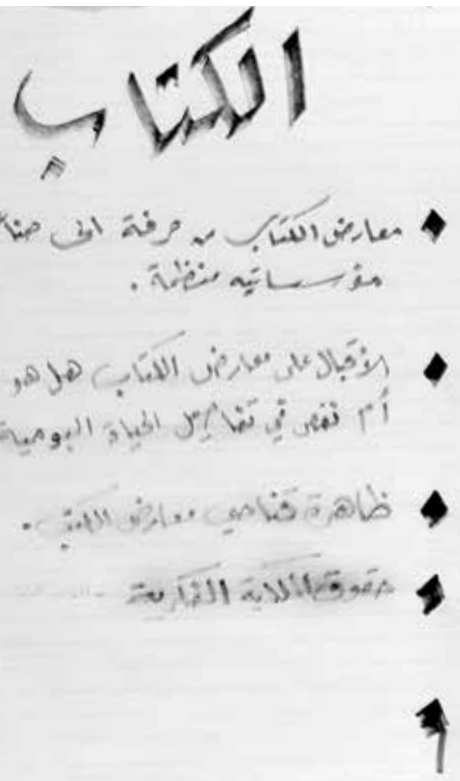 الكتاب
معارض الكتاب من حرفة الى صنا
مؤسساتيه منظمة .
الاقبال على معارض الكتاب هل هو
أم نقص في تفاصيل الحياة اليومية
ظاهرة تنامي معارض الكتب .
حقوق الملكية الفكرية